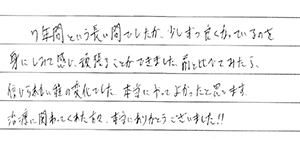 7年間という長い間でしたが、少しずつ良くなっているのを
身にしみて感じ、頑張ることができました。前と比べてみたら、
信じられない程の変化でした。本当にやってよかったと思います。
治療に関わってくれた方々、本当にありがとうございました!!